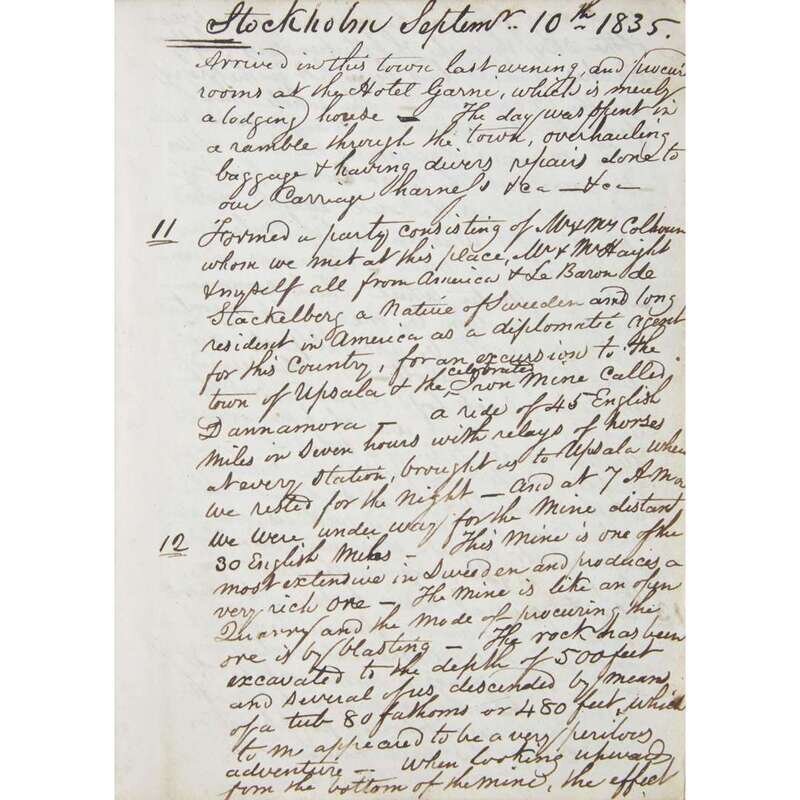 Stockholm Septemr. 10th 1835.
Arrived in this town last evening, and procur
rooms at the Hotel Garni, which is merely
a lodging house – The day was spent in
a ramble through the town, overhauling
baggage & having divers repairs done to
our Carriage harness &ca – &ca
11 Formed a party consisting of Mr & Mrs Colhoun
whom we met at this place, Mr & Mrs Haight
& myself all from America & Le Baron de
Stackelberg a Native of Sweeden and long
resident in America as a diplomatic agent
for this Country, for an excursion to the
town of Upsala & the celebrated Iron Mine Called
Dannamora – a ride of 45 English
Miles in Seven hours with relays of horses
at every station, brought us to Upsala where
we rested for the Night – and at 7 A.M.
12 we were under way for the Mine distant
30 English Miles – This Mine is one of the
most extensive in Sweeden and produces a
very rich ore – The Mine is like an open
Quarry and the mode of procuring the
ore is by blasting – The rock has been
excavated to the depth of 500 feet
and several of us descended by means
of a tub 80 fathoms or 480 feet, which
to me appeared to be a very perilous
adventure – when looking upward
from the bottom of the mine, the effect